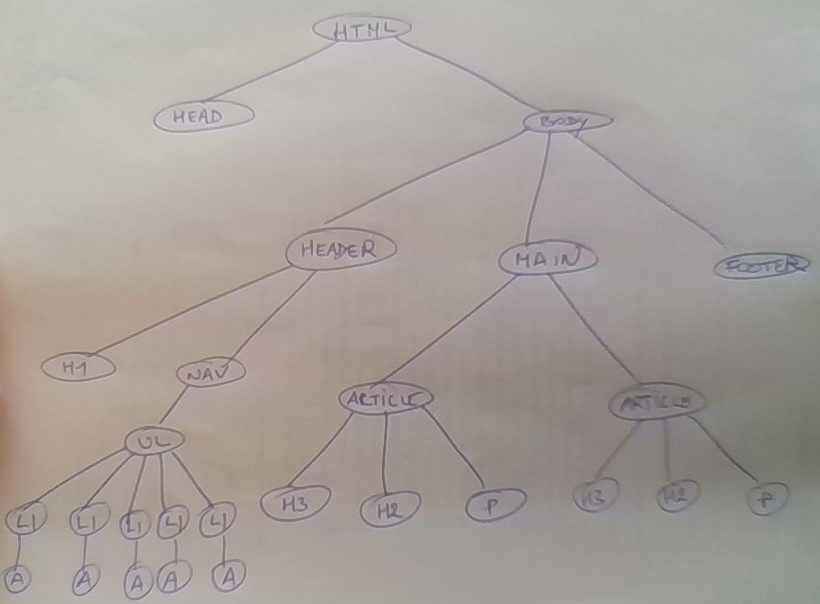 HTML
HEAD
BODY
HEADER
MAIN
FOOTER
H1
NAV
ARTICLE
ARTICLE
UL
H3
H2
P
H3
H2
P
LI
LI
LI
LI
LI
A
A
A
A
A